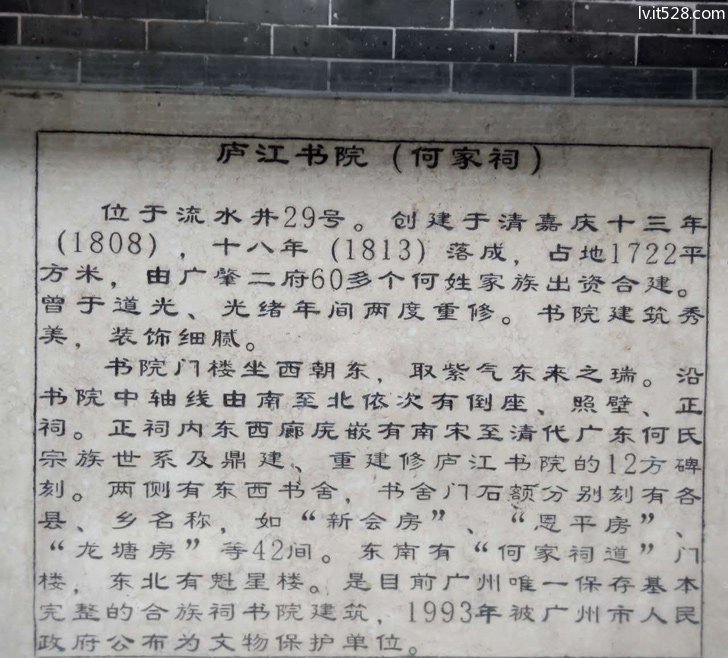 lvit528.com
庐江书院（何家祠）
位于流水井29号。创建于清嘉庆十三年
（1808），十八年（1813）落成，占地1722平
方米，由广肇二府60多个何姓家族出资合建。
曾于道光、光绪年间两度重修。书院建筑秀
美，装饰细腻。
书院门楼坐西朝东，取紫气东来之瑞。沿
书院中轴线由南至北依次有倒座、照壁、正
祠。正祠内东西廊庑嵌有南宋至清代广东何氏
宗族世系及鼎建、重建修庐江书院的12方碑
刻。两侧有东西书舍，书舍门石额分别刻有各
县、乡名称，如“新会房”、“恩平房”、
“龙塘房”等42间。东南有“何家祠道”门
楼，东北有魁星楼。是目前广州唯一保存基本
完整的合族祠书院建筑，1993年被广州市人民
政府公布为文物保护单位。